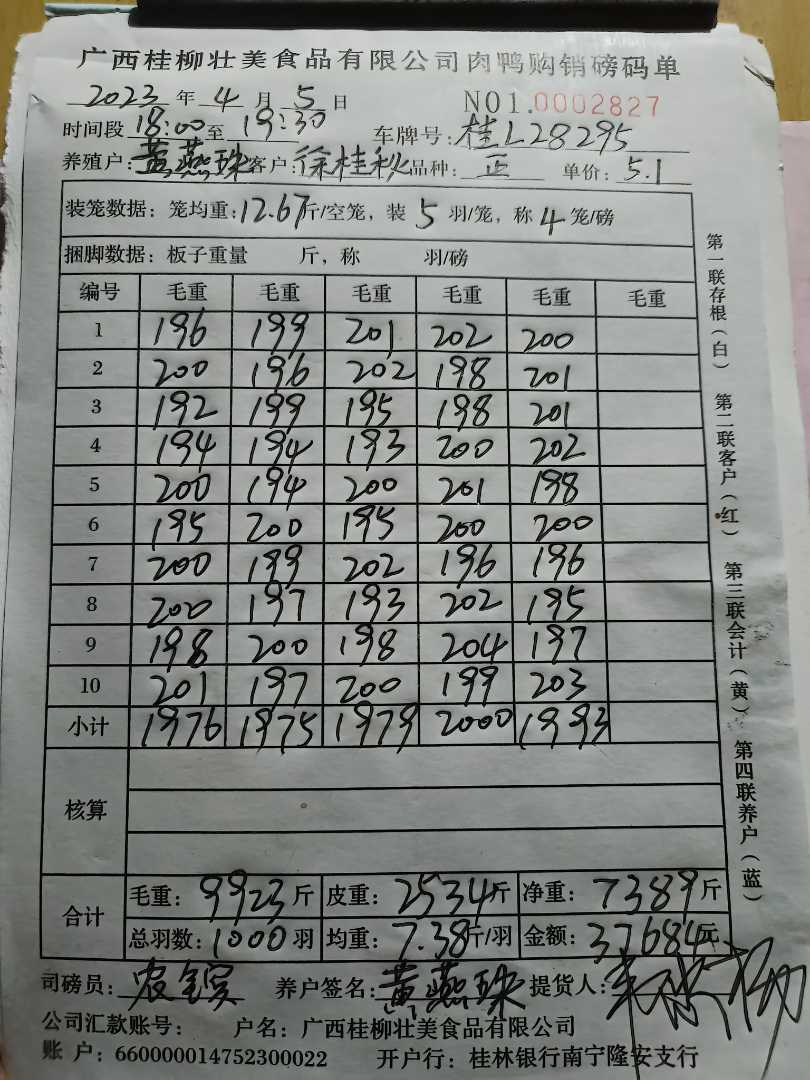 广西桂柳壮美食品有限公司肉鸭购销磅码单
2023 年 4 月 5 日 NO1.0002827
时间段 18:00 至 19:30 车牌号: 桂L28295
养殖户: 黄燕珠 客户: 徐桂秋 品种: 正 单价: 5.1
装笼数据: 笼均重: 12.67 斤/空笼, 装 5 羽/笼, 称 4 笼/磅
捆脚数据: 板子重量 斤, 称 羽/磅
编号 毛重 毛重 毛重 毛重 毛重 毛重
1 196 199 201 202 200
2 200 196 202 198 201
3 192 199 195 198 201
4 194 194 193 200 202
5 200 194 200 201 198
6 195 200 195 200 200
7 200 199 202 196 196
8 200 197 193 202 195
9 198 200 198 204 197
10 201 197 200 199 203
小计 1976 1975 1979 2000 1993
核算
合计 毛重: 9923 斤 皮重: 2534 斤 净重: 7389 斤
总羽数: 1000 羽 均重: 7.38 斤/羽 金额: 37684 元
司磅员: 养户签名: 黄燕珠 提货人:
公司汇款账号: 户名: 广西桂柳壮美食品有限公司
账 户: 660000014752300022 开户行: 桂林银行南宁隆安支行
第一联存根(白) 第二联客户(红) 第三联会计(黄) 第四联养户(蓝)